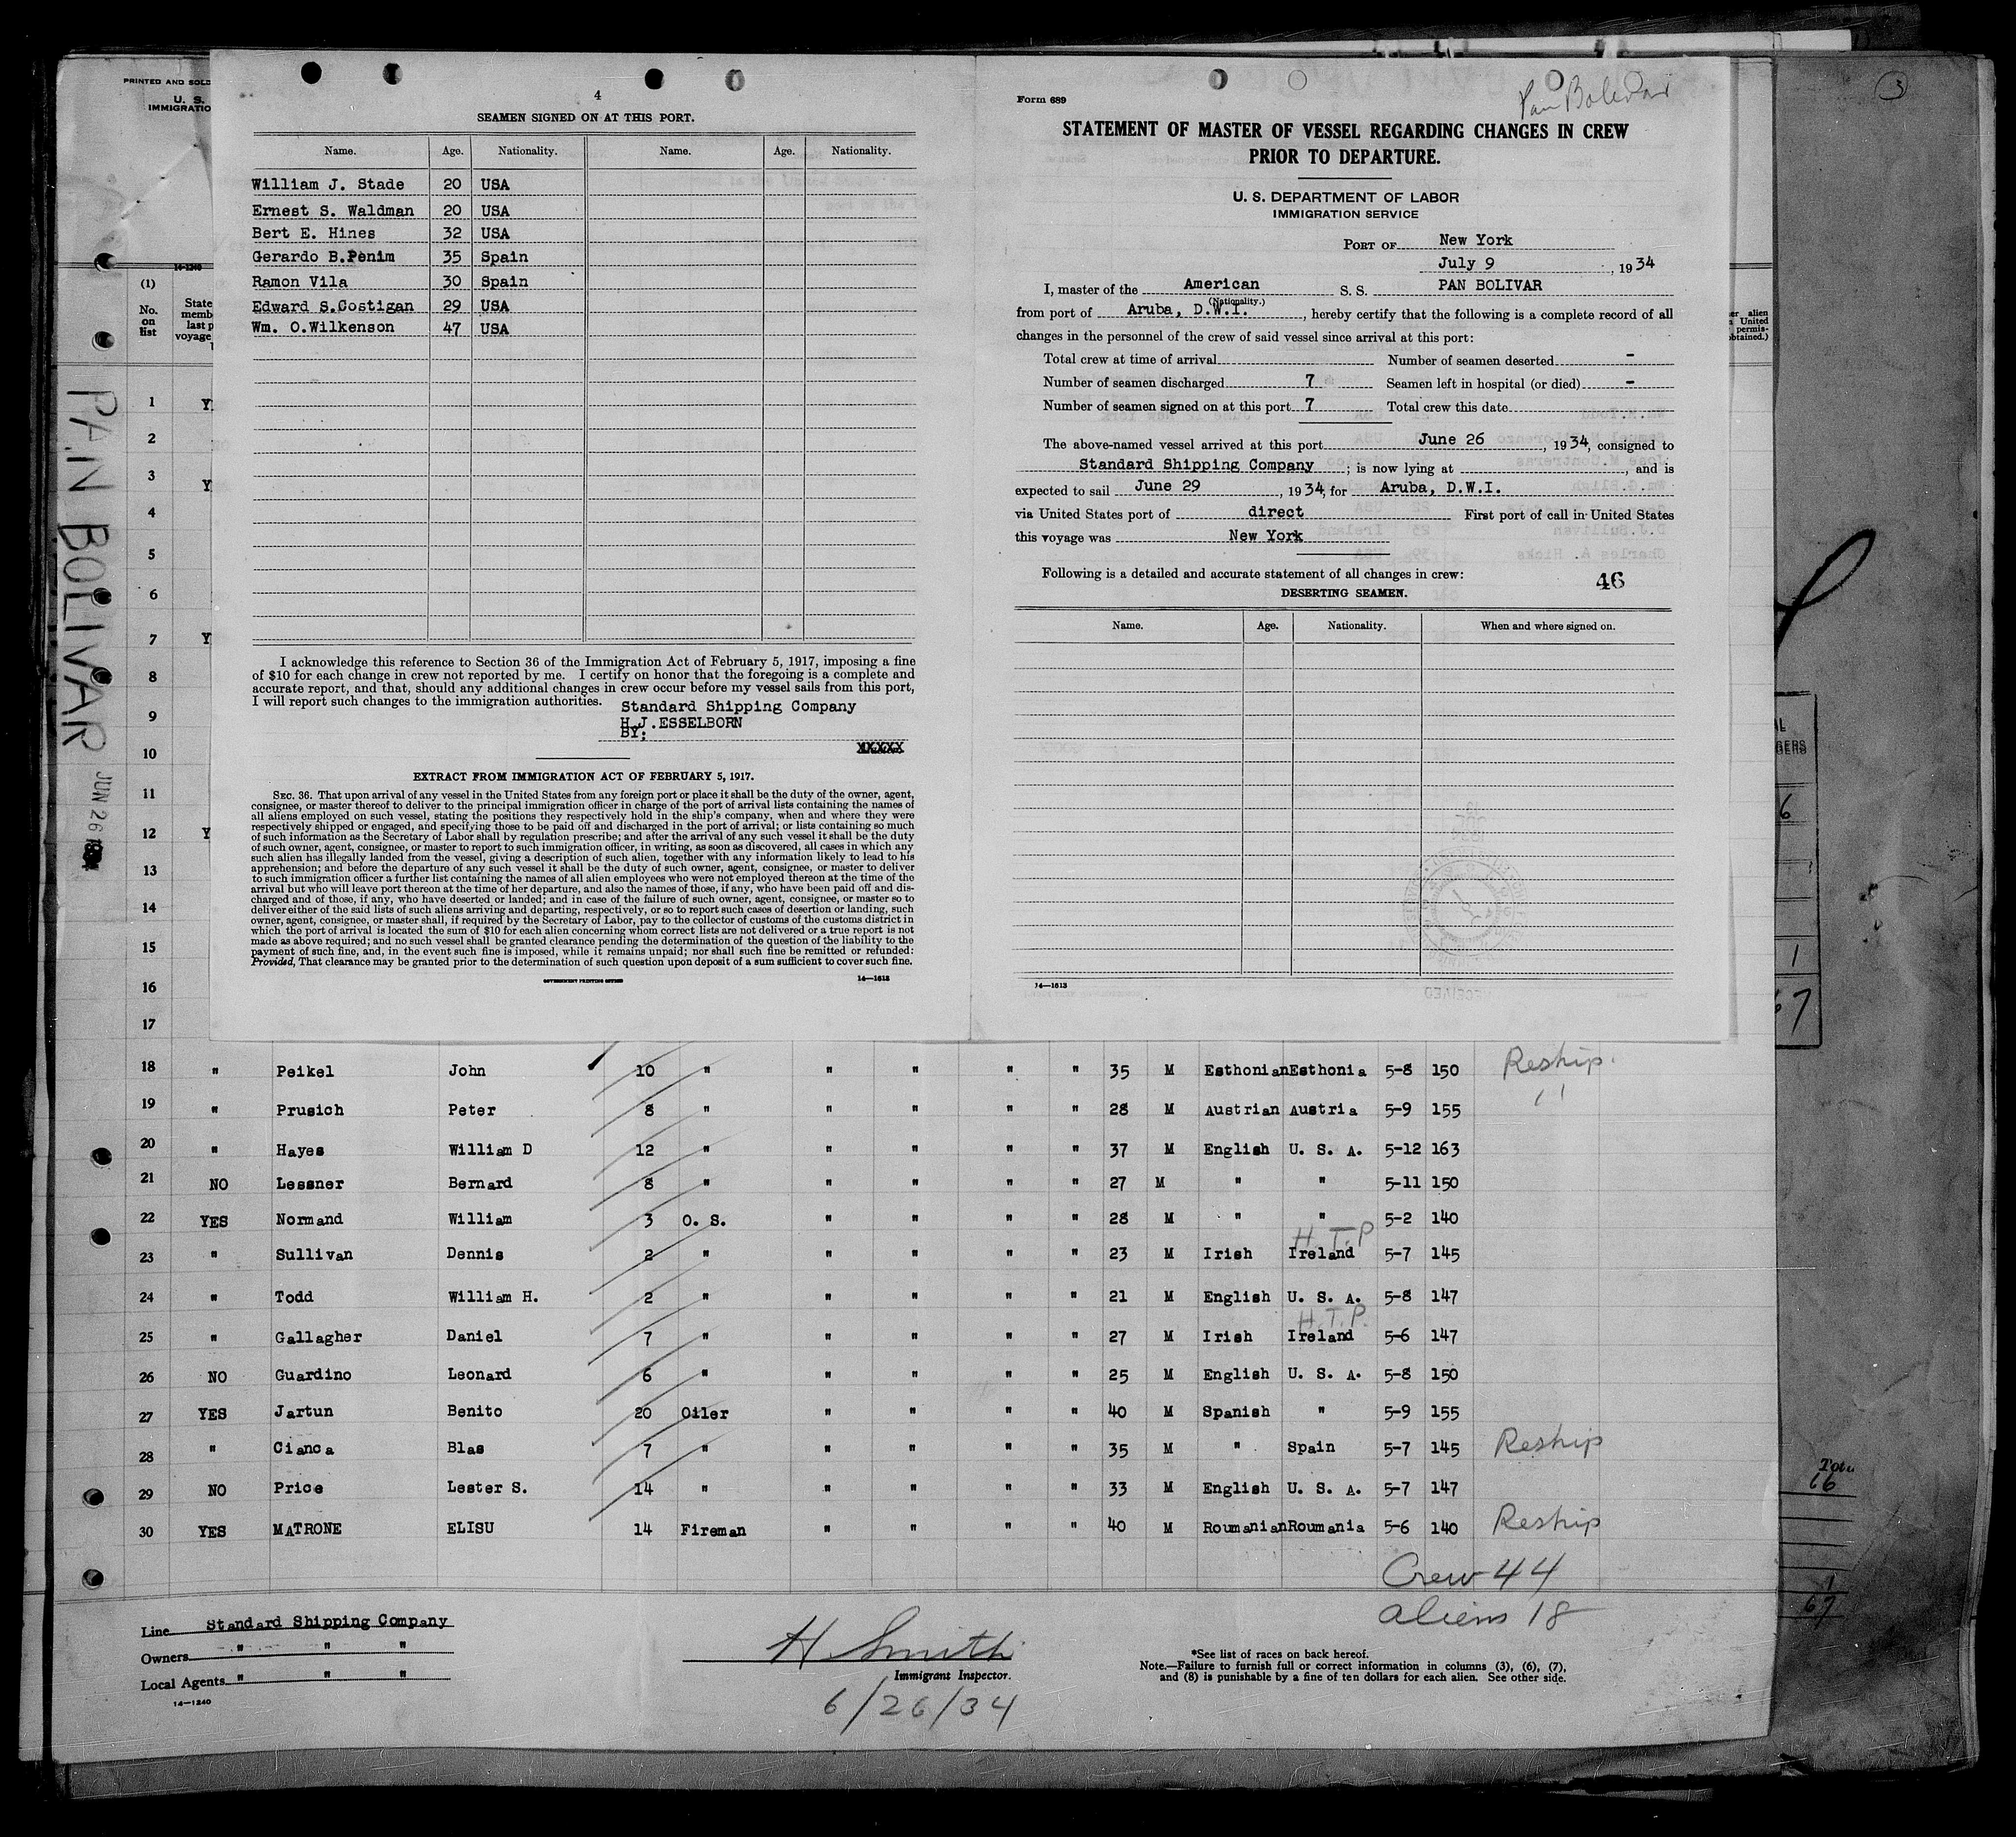 PRINTED AND SOLD
U. S.
IMMIGRATIO
14-1240
(1)
No. on list
State
memb
last p
voyage
PAN BOLIVAR
JUN 26 1934
4
SEAMEN SIGNED ON AT THIS PORT.
Name. Age. Nationality. Name. Age. Nationality.
William J. Stade 20 USA
Ernest S. Waldman 20 USA
Bert E. Hines 32 USA
Gerardo B.Penim 35 Spain
Ramon Vila 30 Spain
Edward S.Costigan 29 USA
Wm. O.Wilkenson 47 USA
I acknowledge this reference to Section 36 of the Immigration Act of February 5, 1917, imposing a fine
of $10 for each change in crew not reported by me. I certify on honor that the foregoing is a complete and
accurate report, and that, should any additional changes in crew occur before my vessel sails from this port,
I will report such changes to the immigration authorities.
Standard Shipping Company
H.J.ESSELBORN
BY:
XXXXX
EXTRACT FROM IMMIGRATION ACT OF FEBRUARY 5, 1917.
SEC. 36. That upon arrival of any vessel in the United States from any foreign port or place it shall be the duty of the owner, agent,
consignee, or master thereof to deliver to the principal immigration officer in charge of the port of arrival lists containing the names of
all aliens employed on such vessel, stating the positions they respectively hold in the ship's company, when and where they were
respectively shipped or engaged, and specifying those to be paid off and discharged in the port of arrival; or lists containing so much
of such information as the Secretary of Labor shall by regulation prescribe; and after the arrival of any such vessel it shall be the duty
of such owner, agent, consignee, or master to report to such immigration officer, in writing, as soon as discovered, all cases in which any
such alien has illegally landed from the vessel, giving a description of such alien, together with any information likely to lead to his
apprehension; and before the departure of any such vessel it shall be the duty of such owner, agent, consignee, or master to deliver
to such immigration officer a further list containing the names of all alien employees who were not employed thereon at the time of the
arrival but who will leave port thereon at the time of her departure, and also the names of those, if any, who have been paid off and dis-
charged and of those, if any, who have deserted or landed; and in case of the failure of such owner, agent, consignee, or master so to
deliver either of the said lists of such aliens arriving and departing, respectively, or so to report such cases of desertion or landing, such
owner, agent, consignee, or master shall, if required by the Secretary of Labor, pay to the collector of customs of the customs district in
which the port of arrival is located the sum of $10 for each alien concerning whom correct lists are not delivered or a true report is not
made as above required; and no such vessel shall be granted clearance pending the determination of the question of the liability to the
payment of such fine, and, in the event such fine is imposed, while it remains unpaid; nor shall such fine be remitted or refunded:
Provided, That clearance may be granted prior to the determination of such question upon deposit of a sum sufficient to cover such fine.
GOVERNMENT PRINTING OFFICE 14—1613
Form 689
Pan Bolivar
STATEMENT OF MASTER OF VESSEL REGARDING CHANGES IN CREW
PRIOR TO DEPARTURE.
U. S. DEPARTMENT OF LABOR
IMMIGRATION SERVICE
PORT OF New York
July 9, 1934
I, master of the American S. S. PAN BOLIVAR
(Nationality.)
from port of Aruba, D.W.I., hereby certify that the following is a complete record of all
changes in the personnel of the crew of said vessel since arrival at this port:
Total crew at time of arrival Number of seamen deserted -
Number of seamen discharged 7 Seamen left in hospital (or died) -
Number of seamen signed on at this port 7 Total crew this date
The above-named vessel arrived at this port June 26, 1934, consigned to
Standard Shipping Company; is now lying at , and is
expected to sail June 29, 1934, for Aruba, D.W.I.
via United States port of direct First port of call in United States
this voyage was New York
Following is a detailed and accurate statement of all changes in crew:
46
DESERTING SEAMEN.
Name. Age. Nationality. When and where signed on.
14—1613
3
er alien
United
permis-
obtained.)
1 Y
2
3 Y
4
5
6
7 Y
8
9
10
11
12 Y
13
14
15
16
17
18 " Peikel John 10 " " " " " 35 M Esthonian Esthonia 5-8 150 Reship.
19 " Prusich Peter 8 " " " " " 28 M Austrian Austria 5-9 155 "
20 " Hayes William D 12 " " " " " 37 M English U. S. A. 5-12 163
21 NO Lessner Bernard 8 " " " " " 27 M " " 5-11 150
22 YES Normand William 3 O. S. " " " " 28 M " " 5-2 140
H.T.P
23 " Sullivan Dennis 2 " " " " " 23 M Irish Ireland 5-7 145
24 " Todd William H. 2 " " " " " 21 M English U. S. A. 5-8 147
H.T.P.
25 " Gallagher Daniel 7 " " " " " 27 M Irish Ireland 5-6 147
26 NO Guardino Leonard 6 " " " " " 25 M English U. S. A. 5-8 150
27 YES Jartun Benito 20 Oiler " " " " 40 M Spanish " 5-9 155
28 " Cianca Blas 7 " " " " " 35 M " Spain 5-7 145 Reship
29 NO Price Lester S. 14 " " " " " 33 M English U. S. A. 5-7 147
30 YES MATRONE ELISU 14 Fireman " " " " 40 M Roumanian Roumania 5-6 140 Reship
Crew 44
aliens 18
Line Standard Shipping Company
Owners " " "
Local Agents " " "
14—1240
H Smith
Immigrant Inspector.
6/26/34
*See list of races on back hereof.
Note.—Failure to furnish full or correct information in columns (3), (6), (7),
and (8) is punishable by a fine of ten dollars for each alien. See other side.
6
1
67
Tot
66
1
67